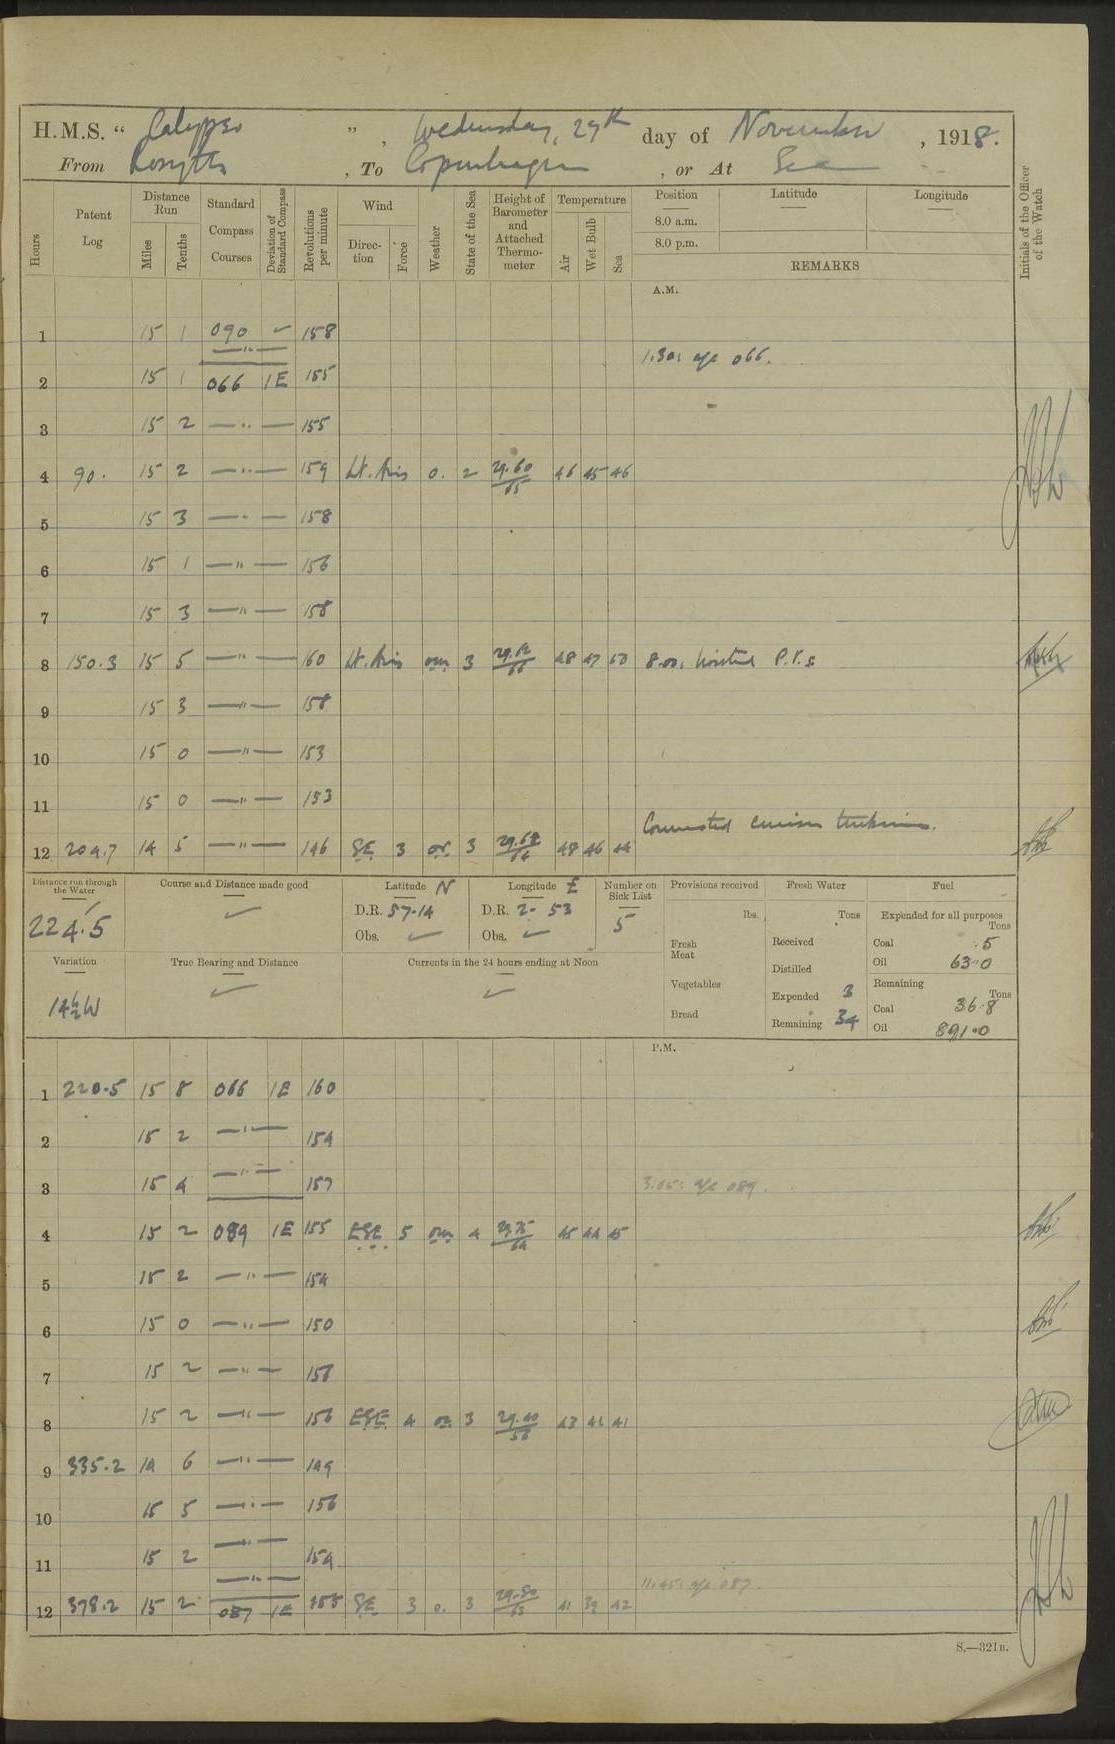 H.M.S. " Calypso " , Wednesday, 27th day of November , 1918.
From Rosyth , To Copenhagen , or At Sea
Hours Patent Log Distance Run Miles Tenths Standard Compass Courses Deviation of Standard Compass Revolutions per minute Wind Direction Force Weather State of the Sea Height of Barometer and Attached Thermometer Temperature Air Wet Bulb Sea Position Latitude Longitude Initials of the Officer of the Watch
8.0 a.m.
8.0 p.m.
REMARKS
A.M.
1 15 1 090 ✓ 158
—"—
1.30: a/c 066.
2 15 1 066 1E 155
3 15 2 —"— 155
4 90. 15 2 —"— 159 Lt. Airs o. 2 29.60/65 46 45 46
5 15 3 —"— 158
6 15 1 —"— 156
7 15 3 —"— 158
8 150.3 15 5 —"— 160 Lt. Airs om 3 48 47 50 8.00: hoisted P.V.s
9 15 3 —"— 158
10 15 0 —"— 153
11 15 0 —"— 153
Connected cruising turbines.
12 204.7 14 5 —"— 146 SE 3 or. 3 29.68/64 48 46 44
Distance run through the Water
224.5
Course and Distance made good
✓
Latitude N
D.R. 57-14
Obs. ✓
Longitude E
D.R. 2- 53
Obs. ✓
Number on Sick List
5
Provisions received
lbs.
Fresh Meat
Vegetables
Bread
Fresh Water
Tons
Received
Distilled
Expended 3
Remaining 34
Fuel
Expended for all purposes
Tons
Coal .5
Oil 63.0
Remaining
Tons
Coal 36.8
Oil 891.0
Variation
14½W
True Bearing and Distance
✓
Currents in the 24 hours ending at Noon
✓
P.M.
1 220.5 15 8 066 1E 160
2 15 2 —"— 154
3 15 4 —"— 157 3.05: a/c 089.
4 15 2 089 1E 155 ESE 5 om 4 29.75/64 45 44 45
5 15 2 —"— 154
6 15 0 —"— 150
7 15 2 —"— 156
8 15 2 —"— 156 ESE 4 o. 3 43 41
9 335.2 14 6 —"— 149
10 15 5 —"— 156
11 15 2 —"— 154
—"—
11.45: a/c 087.
12 378.2 15 2 087 1E 155 SE 3 o. 3 29.80/63 41 39 42
S.—321B.